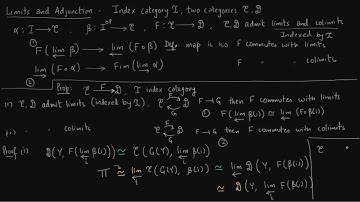 Limits and Adjunction - Index category I, two categories C, D
α: I → C, β: I^op → C, F: C → D, C, D admit limits and colimits
indexed by I
① F(lim β) → lim (F∘β) Def: map is iso F commutes with limits
② lim (F∘α) → F(lim α) F " " colimits
Prop: C →F D, I index category
(i) C, D admit limits (indexed by I), C D F ⊣ G then F commutes with limits
① F(lim β(i)) ≃ lim (F∘β(i))
(ii) " colimits C D F ⊣ G then F commutes with colimits
②
Proof (i) D(Y, F(lim β(i))) ≃ C(G(Y), lim β(i))
Π ≃ lim C(G(Y), β(i)) ≃ lim D(Y, F(β(i)))
≃ D(Y, lim F(β(i)))
C